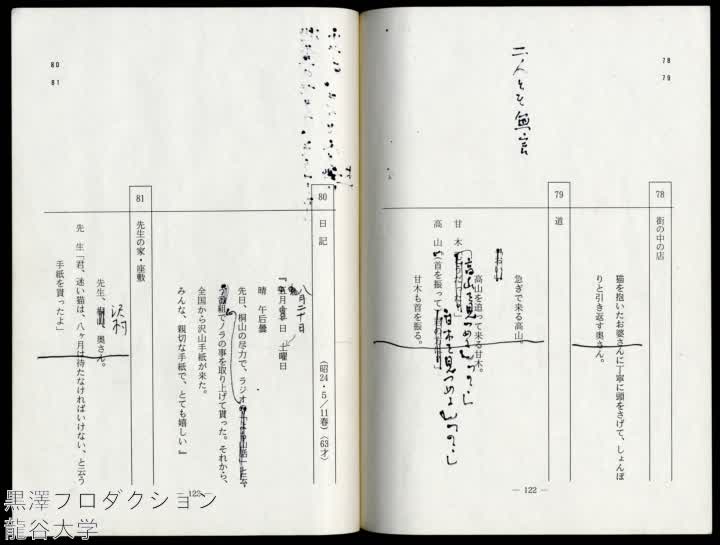 78
79
二人とも無言
78
街の中の店
猫を抱いたお婆さんに丁寧に頭をさげて、しょんぼ
りと引き返す奥さん。
79
道
急ぎで来る高山。
高山を追って来る甘木。
甘木
高山を見つめる
高山(首を振って
甘木を見つめる
甘木も首を振る。
― 122 ―
80
81
80
日記
(昭24・5/11春)(63才)
八月二十日
土曜日
晴 午后曇
先日、桐山の尽力で、ラジオ
組でノラの事を取り上げて貰った。それから、
全国から沢山手紙が来た。
みんな、親切な手紙で、とても嬉しい』
81
先生の家・座敷
先生、奥さん。
沢村
先生「君、迷い猫は、八ヶ月は待たなければいけない、と云う
手紙を貰ったよ」
― 123 ―
黒澤プロダクション
龍谷大学